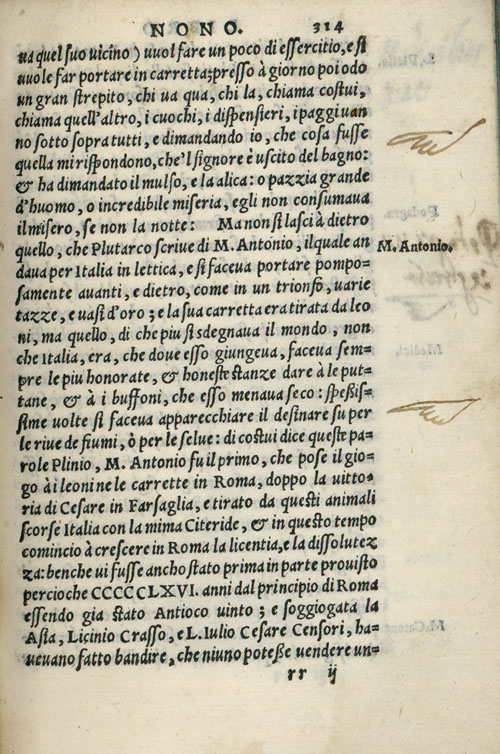 NONO. 314
ua quel suo uicino) uuol fare un poco di essercitio, e si
uuole far portare in carretta; presso à giorno poi odo
un gran strepito, chi ua qua, chi la, chiama costui,
chiama quell'altro, i cuochi, i dispensieri, i paggi uan
no sotto sopra tutti, e dimandando io, che cosa fusse
quella mi rispondono, che'l signore è uscito del bagno:
& ha dimandato il mulso, e la alica: o pazzia grande
d'huomo, o incredibile miseria, egli non consumaua
il misero, se non la notte: Ma non si lasci à dietro
quello, che Plutarco scriue di M. Antonio, il quale an
M. Antonio.
daua per Italia in lettica, e si faceua portare pompo=
samente auanti, e dietro, come in un trionfo, uarie
tazze, e uasi d'oro; e la sua carretta era tirata da leo
ni, ma quello, di che piu si sdegnaua il mondo, non
che Italia, era, che doue esso giungeua, faceua sem=
pre le piu honorate, & honeste stanze dare à le put=
tane, & à i buffoni, che esso menaua seco: speßis=
sime uolte si faceua apparecchiare il desinare su per
le riue de fiumi, ò per le selue: di costui dice queste pa=
role Plinio, M. Antonio fu il primo, che pose il gio=
go à i leoni ne le carrette in Roma, doppo la uitto=
ria di Cesare in Farsaglia, e tirato da questi animali
scorse Italia con la mima Citeride, & in questo tempo
comincio à crescere in Roma la licentia, e la dissolutez
za: benche ui fusse ancho stato prima in parte prouisto
percioche CCCCCLXVI. anni dal principio di Roma
essendo gia stato Antioco uinto; e soggiogata la
Asia, Licinio Crasso, e L. Iulio Cesare Censori, ha=
ueuano fatto bandire, che niuno poteße uendere un=
rr ij